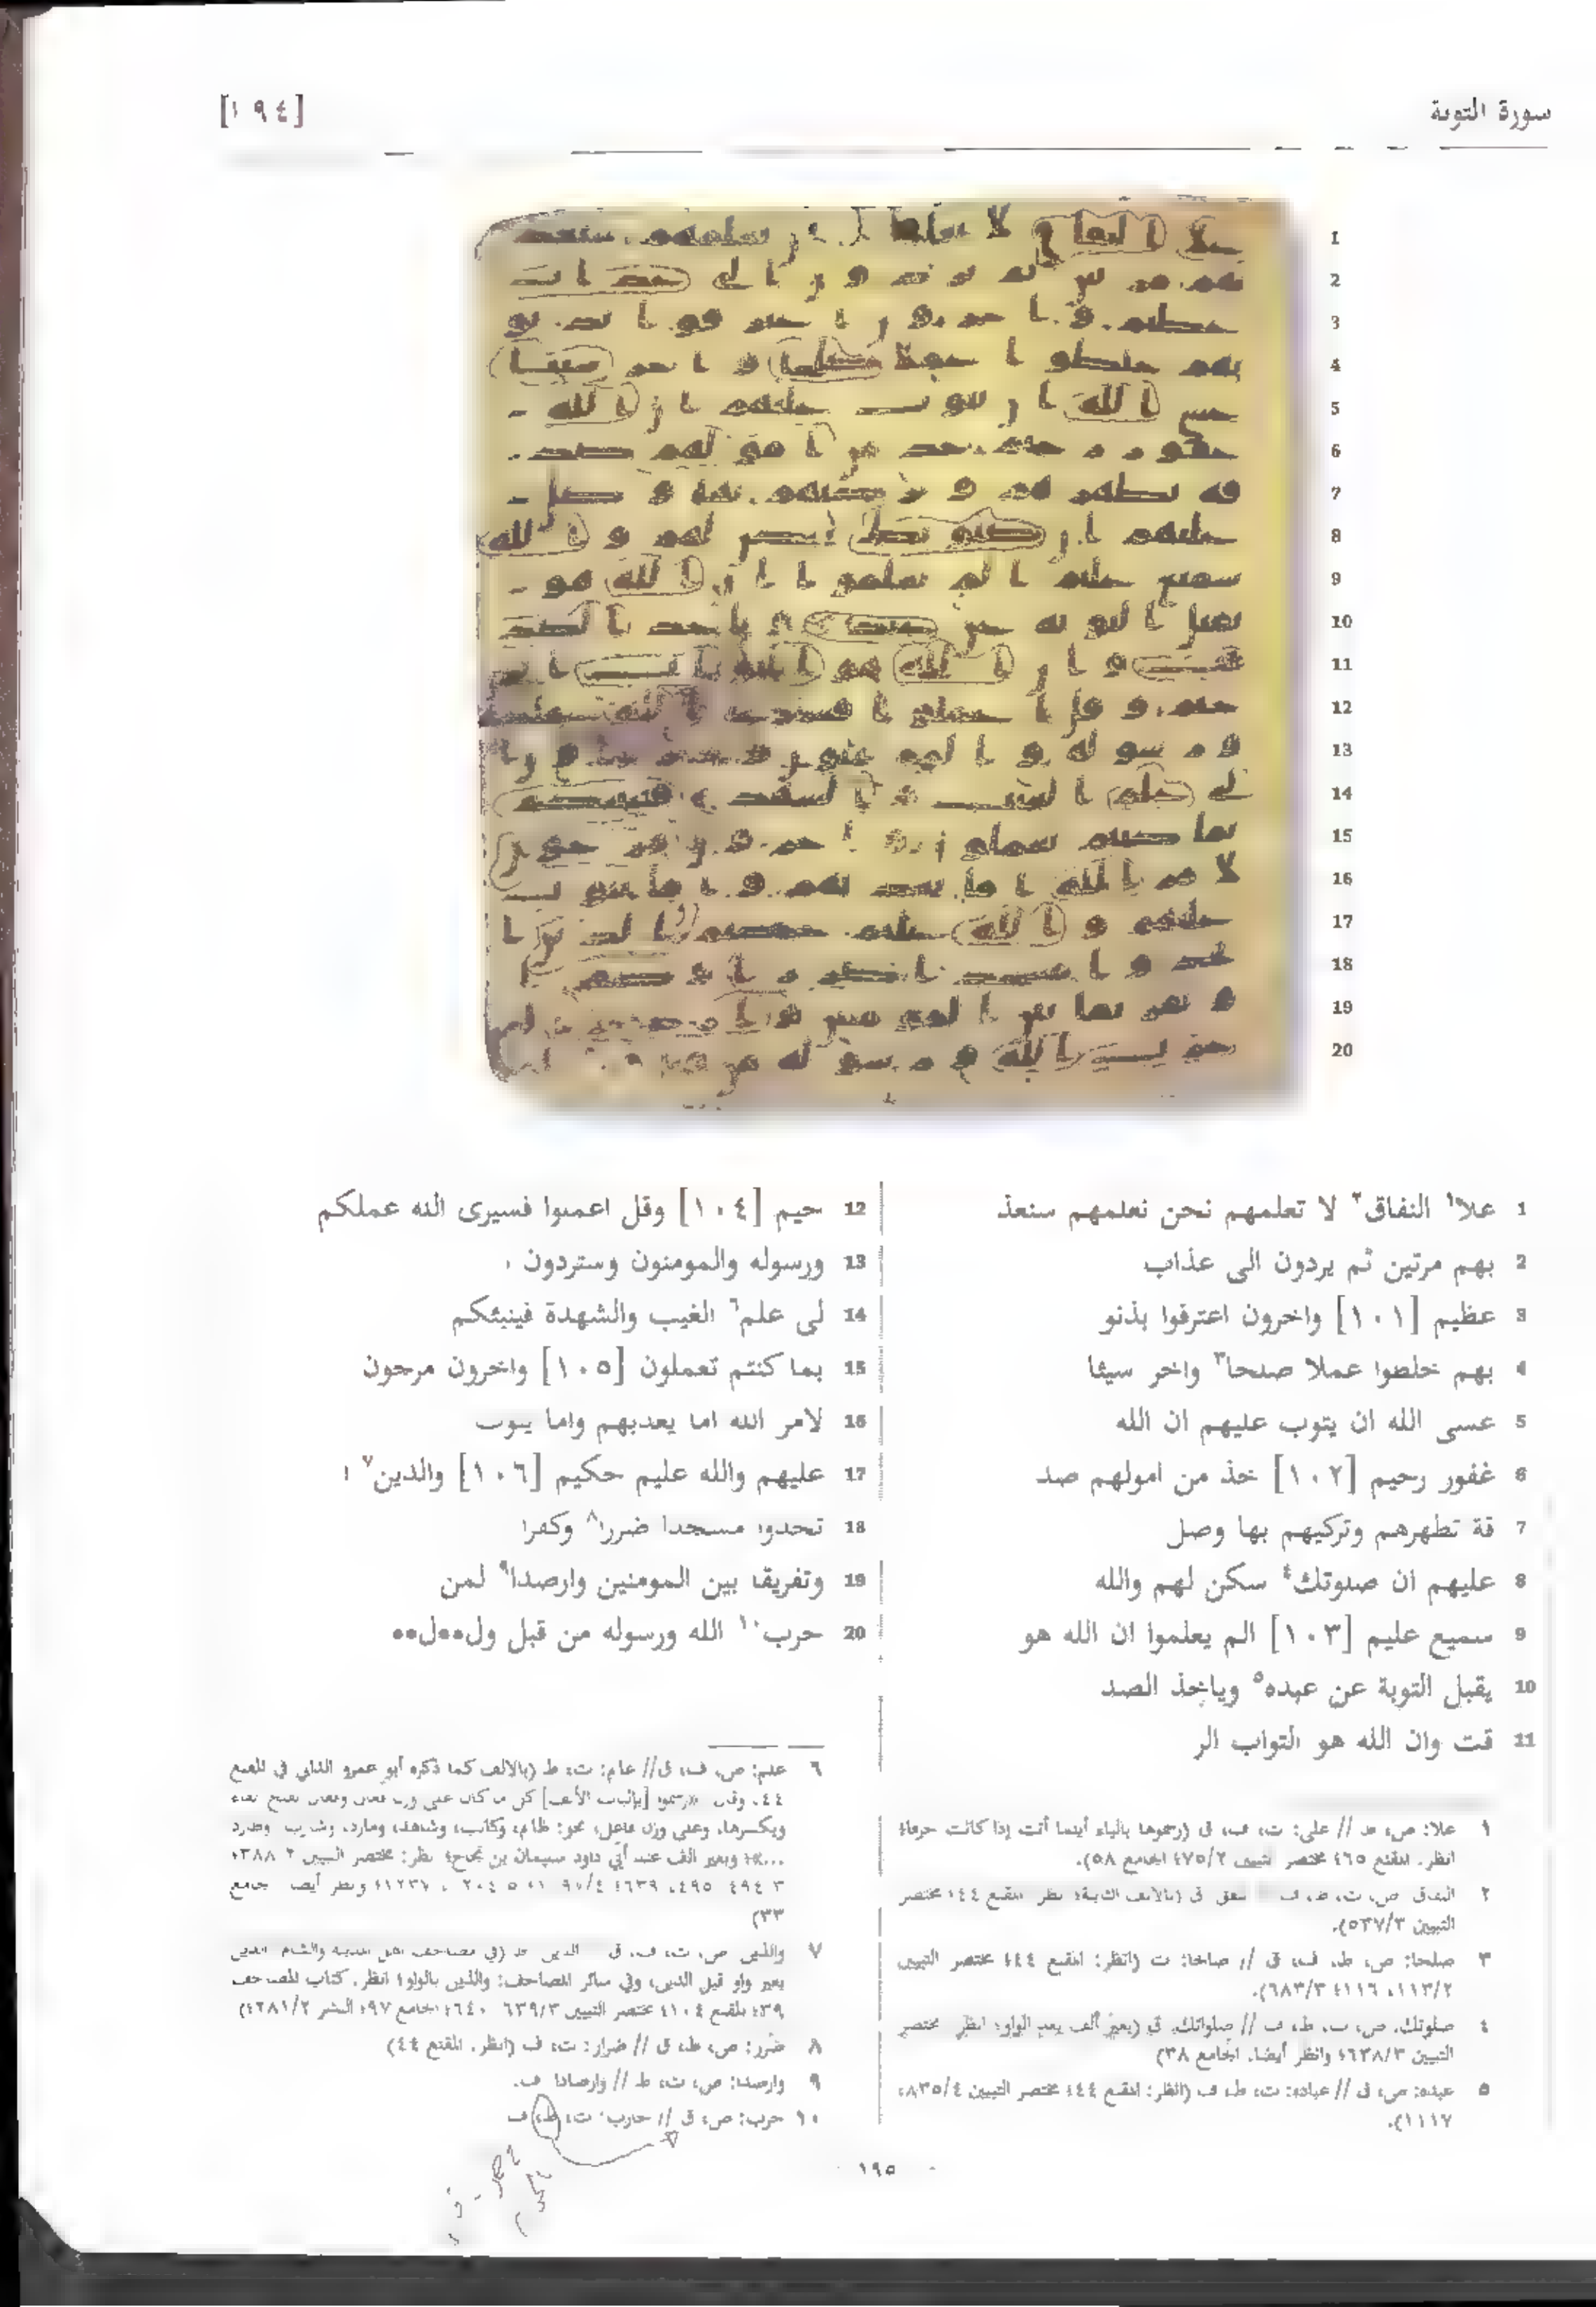 سورة التوبة
[١٩٤]
1
2
3
4
5
6
7
8
9
10
11
12
13
14
15
16
17
18
19
20
1 علا١ النفاق٢ لا تعلمهم نحن نعلمهم سنعذ
2 بهم مرتين ثم يردون الى عذاب
3 عظيم [١٠١] واخرون اعترفوا بذنو
4 بهم خلطوا عملا صلحا٣ واخر سيئا
5 عسى الله ان يتوب عليهم ان الله
6 غفور رحيم [١٠٢] خذ من امولهم صد
7 قة تطهرهم وتزكيهم بها وصل
8 عليهم ان صلوتك٤ سكن لهم والله
9 سميع عليم [١٠٣] الم يعلموا ان الله هو
10 يقبل التوبة عن عبده٥ وياخذ الصد
11 قت وان الله هو التواب الر
12 حيم [١٠٤] وقل اعملوا فسيرى الله عملكم
13 ورسوله والمومنون وستردون ا
14 لى علم٦ الغيب والشهدة فينبئكم
15 بما كنتم تعملون [١٠٥] واخرون مرجون
16 لامر الله اما يعذبهم واما يتوب
17 عليهم والله عليم حكيم [١٠٦] والذين٧ ا
18 تخذوا مسجدا ضررا٨ وكفرا
19 وتفريقا بين المومنين وارصدا٩ لمن
20 حرب١٠ الله ورسوله من قبل ول●●ل●●
١ علا: ص، ط // على: ت، ف، ق (رسموها بالياء أينما أتت إذا كانت حرفا؛
انظر: المقنع ٦٥؛ مختصر التبيين ٧٥/٢؛ الجامع ٥٨).
٢ النفاق: ص، ت، ط، ف ق (بالألف الثابتة؛ نظر: المقنع ٤٤؛ مختصر
التبيين ٥٣٧/٣).
٣ صلحا: ص، ط، ف، ق // صالحا: ت (انظر: المقنع ٤٤؛ مختصر التبيين
١١٣/٢، ١١٦؛ ٦٨٣/٣).
٤ صلوتك: ص، ت، ط، ف // صلواتك: ق (بغير ألف بعد الواو؛ انظر: مختصر
التبيين ٦٣٨/٣؛ وانظر أيضا: الجامع ٣٨)
٥ عبده: ص، ق // عباده: ت، ط، ف (انظر: المقنع ٤٤؛ مختصر التبيين ٨٣٥/٤،
١١١٧).
٦ علم: ص، ف، ق // عام: ت، ط (بالالف كما ذكره أبو عمرو الداني في المقنع
٤٤، وقال: «رسموا [بإثبات الألف] كل ما كان على وزن فعال وفعال بفتح الفاء
وبكسرها، وعلى وزن فاعل، نحو: ظالم، وكاتب، وشاهد، ومارد، وشارب وطارد
...»؛ وبغير الف عند أبي داود سليمان بن نجاح؛ نظر: مختصر التبيين
٣٣)
٧ والذين: ص، ت، ف، ق الذين: ط (في مصاحف اهل المدينة والشام الذين
بغير واو قبل الذين، وفي سائر المصاحف: والذين بالواو؛ انظر: كتاب المصاحف
٣٩؛ المقنع ١٠٤؛ مختصر التبيين ٦٣٩/٣ ٦٤٠؛ الجامع ٩٧؛ النشر ٢٨١/٢)
٨ ضرر: ص، ط، ق // ضرار: ت، ف (انظر: المقنع ٤٤)
٩ وارصدا: ص، ت، ط // وارصادا: ف.
١٠ حرب: ص، ق // حارب: ت، ط، ف
١٩٥